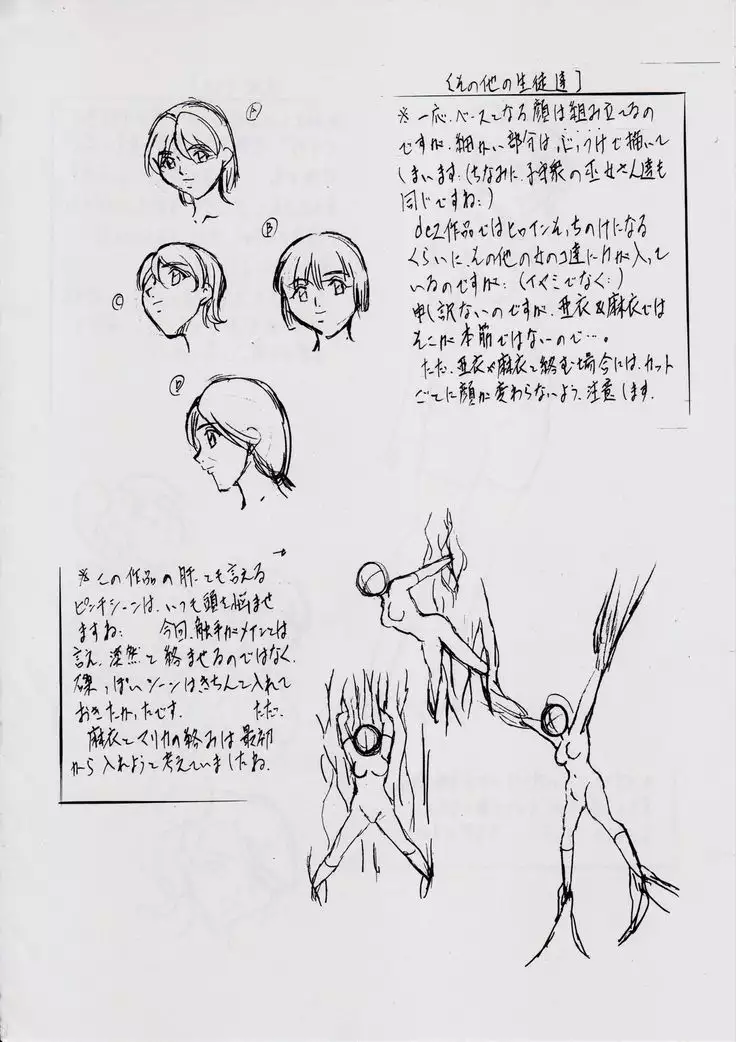 〔その他の生徒達〕
※ 一応、ベースとなる顔は組み立てるの
ですが、細かい部分は、心っうけで描いて
しまいます。(ちなみに、子守衆の巫女さん達も
同じですね:)
de2作品ではヒロインそっちのけになる
くらいに、その他の女のコ達に力が入って
いるのですが:(イヤミでなく:)
申し訳ないのですが、亜衣&麻衣では
そこが本筋ではないので…。
ただ、亜衣や麻衣と絡む場合には、カット
ごとに顔が変わらないよう、注意します。
A
B
C
D
→
※この作品の肝とも言える
ピンチシーンは、いつも頭を悩ませ
ますね: 今回、触手がメインとは
言え、漠然と絡ませるのではなく、
磔っぽいシーンはきちんと入れて
おきたかったです。 ただ、
麻衣とマリカの絡みは最初
から入れようと考えていましたね。